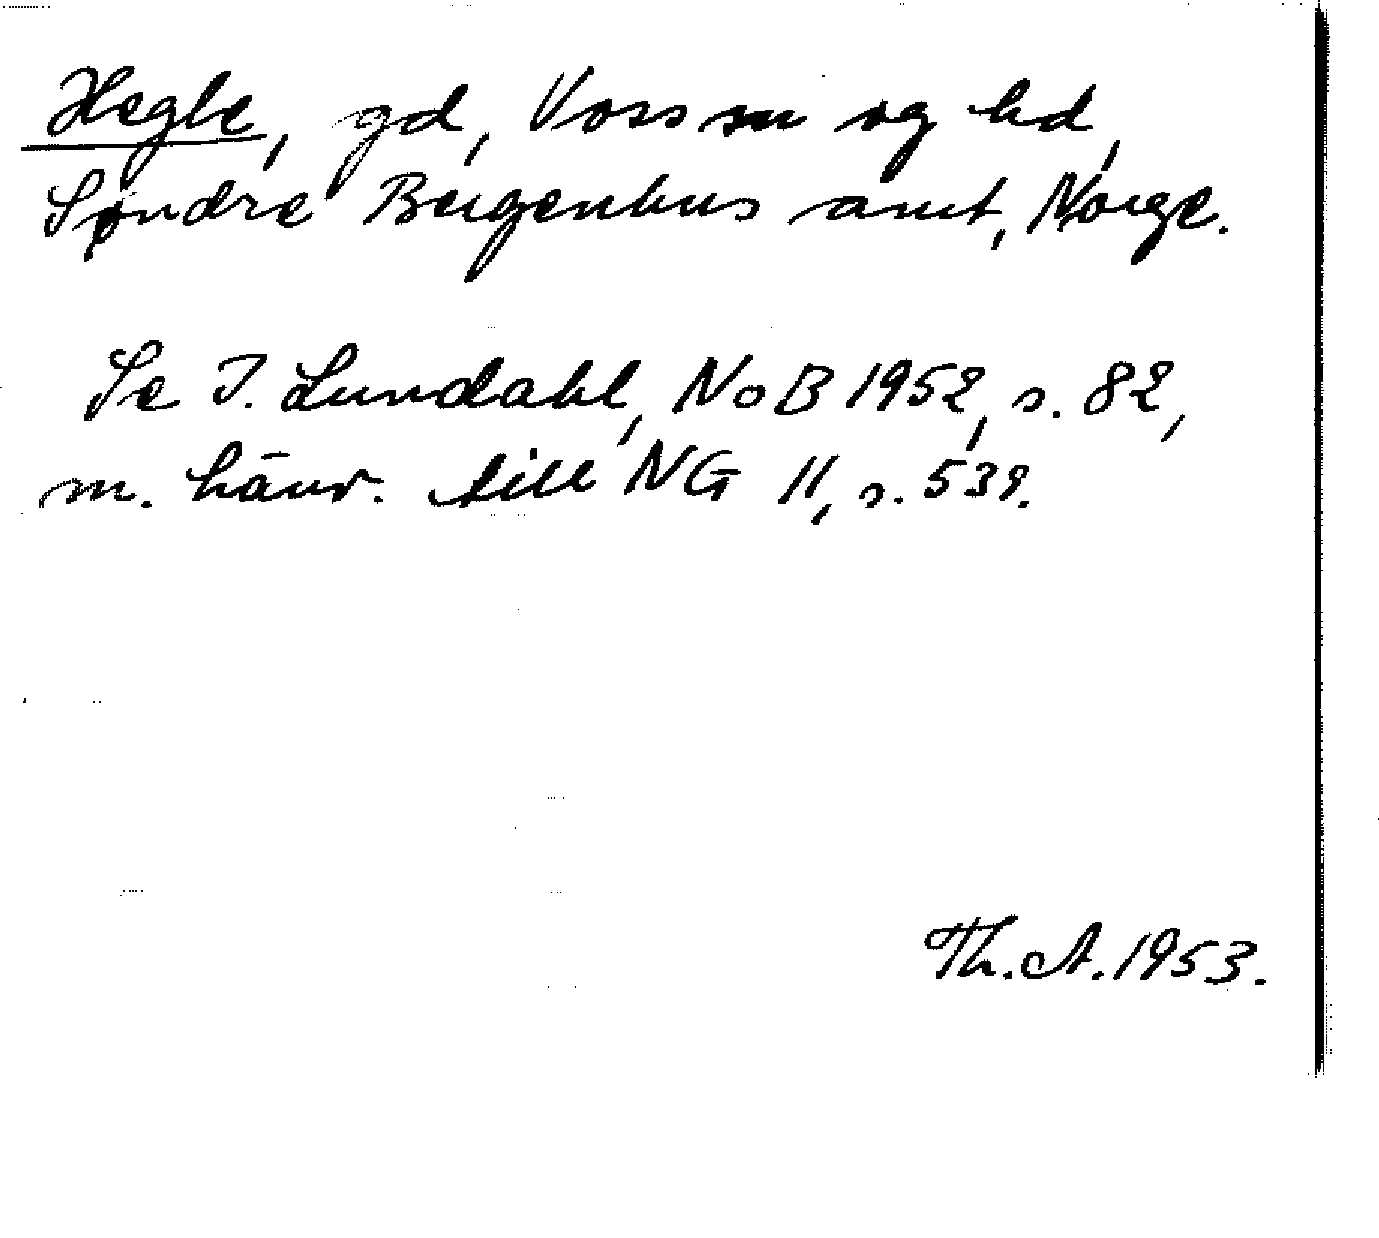 Hegle, gd, Voss sn og hd,
Søndre Bergenhus amt, Norge.
Se I. Lundahl, NoB 1952, s. 82,
m. hänv. till NG 11, s. 539.
Th. A. 1953.